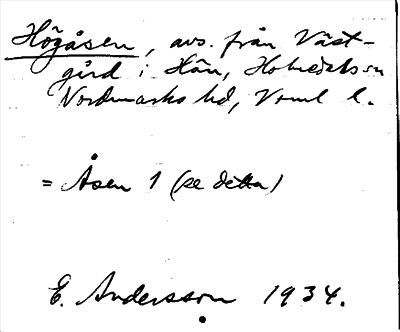 Högåsen, avs. från Väst-
gård i Hän, Holmedals sn
Nordmarks hd, Vrml l.
= Åsen 1 (se detta)
E. Andersson 1934.